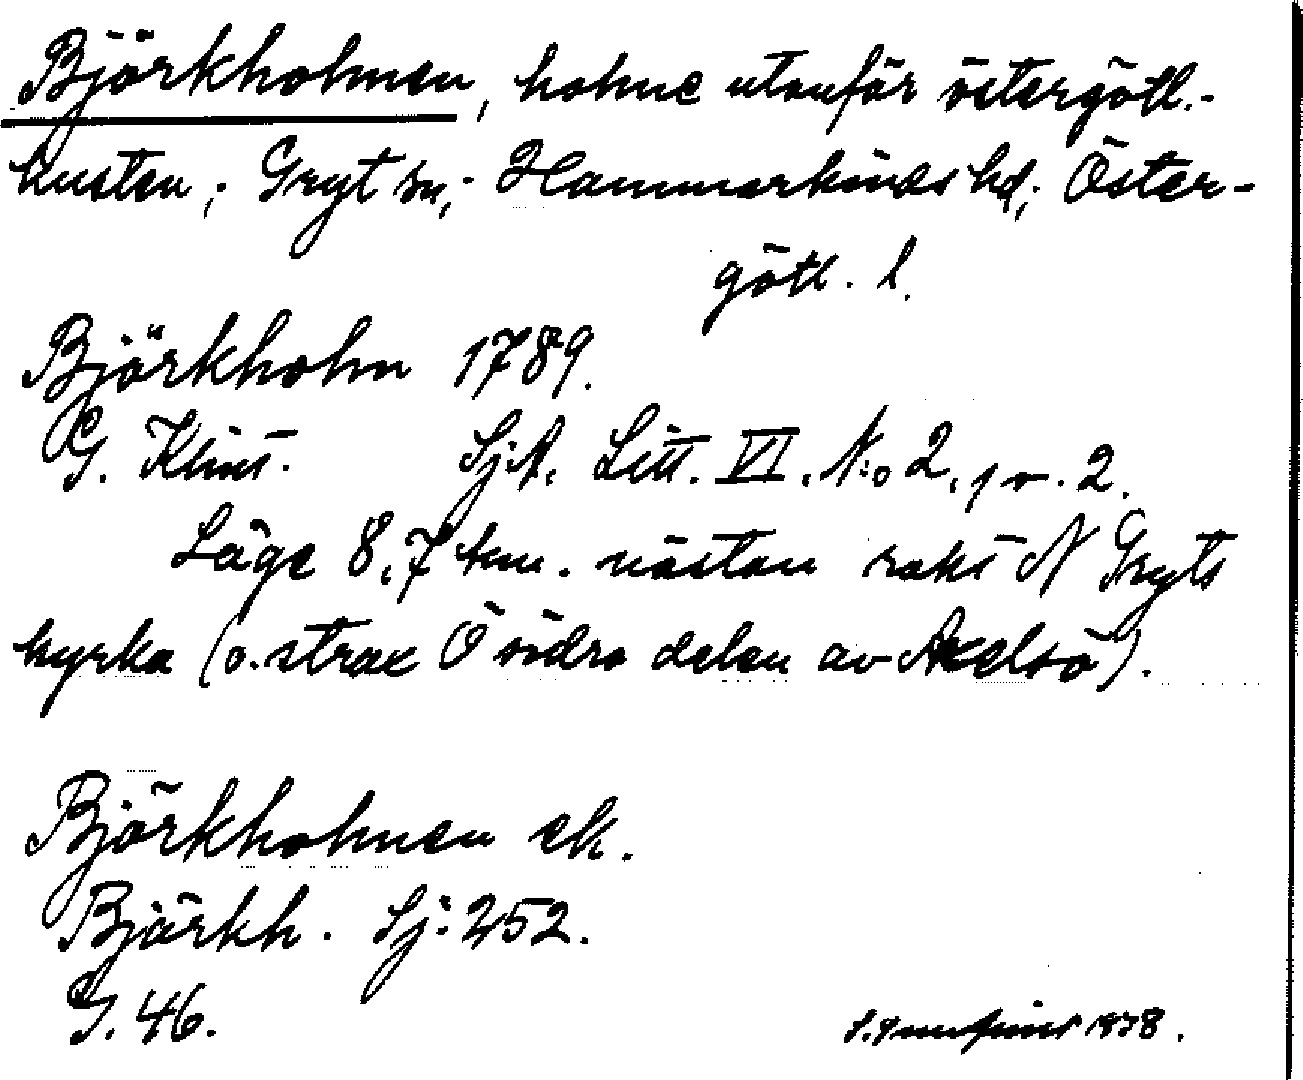 Björkholmen, holme utanför östergötl.-
kusten; Gryt sn; Hammarkinds hd; Öster-
götl. l.
Björkholm 1789.
G. Klint. SjA. Litt. VI. N:o 2, 1 v. 2.
Läge 8,7 km. nästan rakt N Gryts
kyrka (o. strax Ö södra delen av Axelsö).
Björkholmen ek.
Björkh. Sj: 252.
G. 46.
1938.